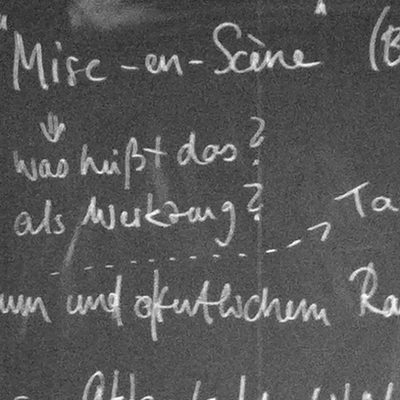 "Mise-en-Scène" (B
was heißt das?
als Werkzeug? Ta
um und öffentlichem Ra